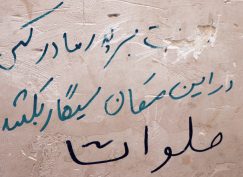 بمیرد مادر کسی
در این مکان سیگار بکشد
صلوات